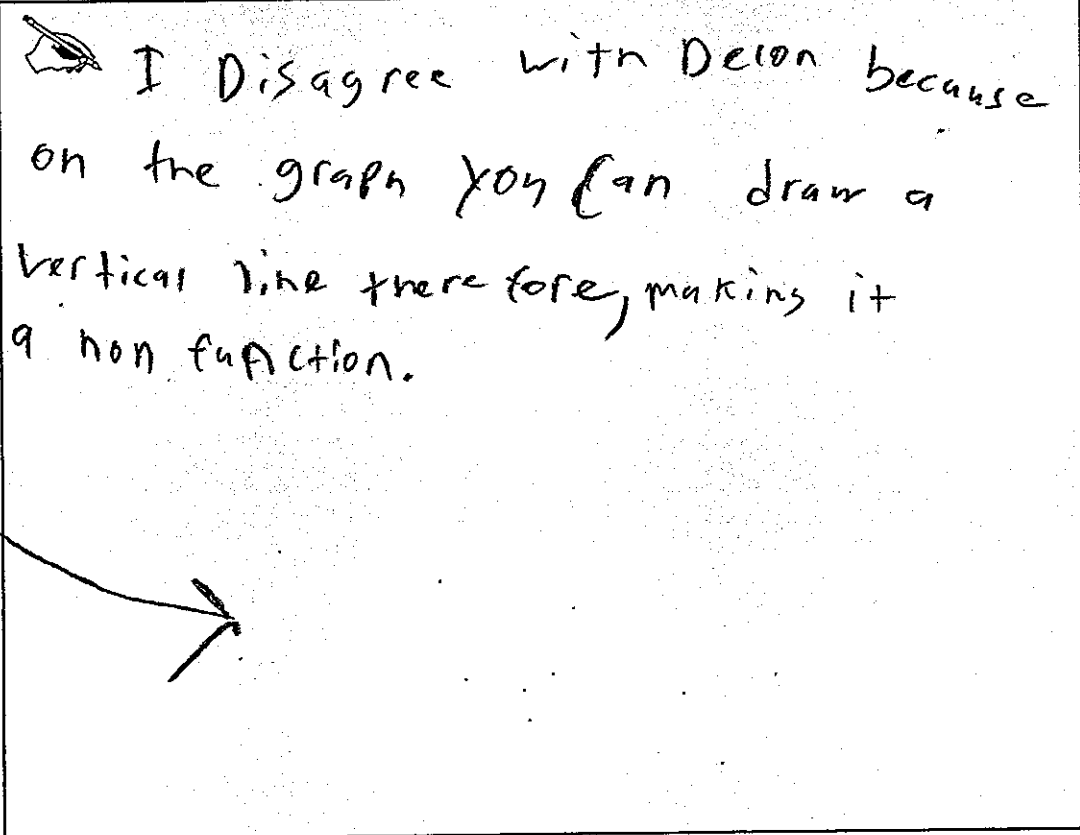 I Disagree with Delon because
on the graph you can draw a
vertical line therefore, making it
a non function.